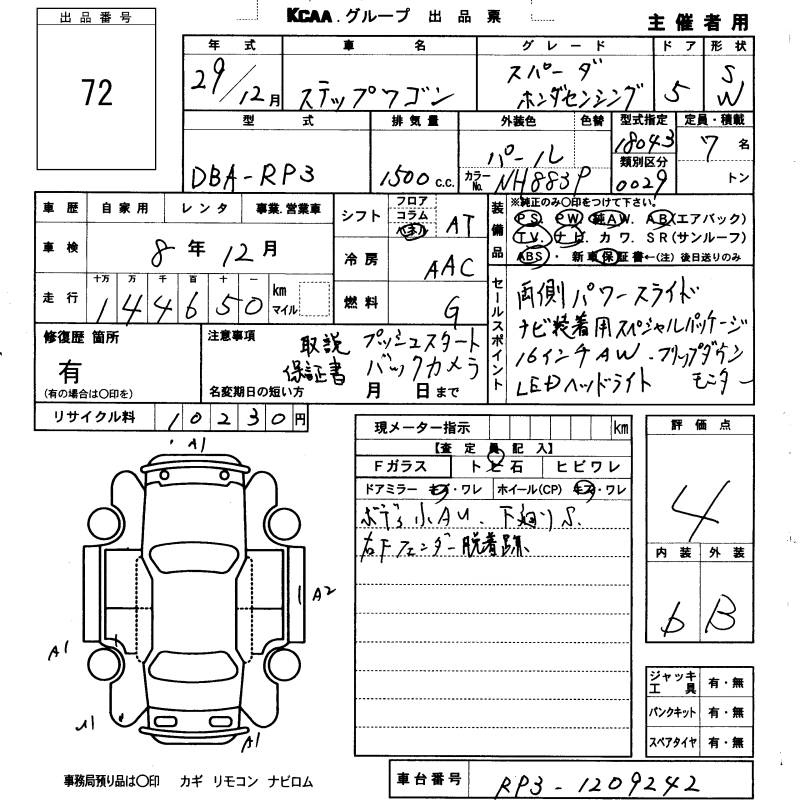 KCAA.グループ 出品票
主催者用
出品番号
72
年式 車名 グレード ドア 形状
29/12月 ステップワゴン スパーダ ホンダセンシング 5 SW
型式 排気量 外装色 色替 型式指定 定員・積載
DBA-RP3 1500c.c. パール 18043 7名
カラーNo. NH883P 類別区分 0029 トン
車歴 自家用 レンタ 事業.営業車
車検 8年12月
走行 十万 万 千 百 十 一
144650 km マイル
シフト フロア コラム パネル AT
冷房 AAC
燃料 G
装備品 ※純正のみ〇印をつけて下さい。
PS. PW 純AW. AB(エアバック)
TV. ナビ. カワ. SR(サンルーフ)
ABS・新車保証書←(注)後日送りのみ
セールスポイント
両側パワースライド
ナビ装着用スペシャルパッケージ
16インチAW.フリップダウン
LEDヘッドライト モニター
修復歴 箇所
有
(有の場合は〇印を)
注意事項 取説 プッシュスタート
保証書 バックカメラ
名変期日の短い方 月 日まで
リサイクル料 10230円
現メーター指示 km
【査定員記入】
Fガラス トビ石 ヒビワレ
ドアミラー キズ・ワレ ホイール(CP) キズ・ワレ
ボディ小AU.下廻りS.
右Fフェンダー脱着跡
評価点
4
内装 外装
b B
A1
A2
A1
A1
A1
ジャッキ工具 有・無
パンクキット 有・無
スペアタイヤ 有・無
事務局預り品は〇印 カギ リモコン ナビロム
車台番号 RP3-1209242